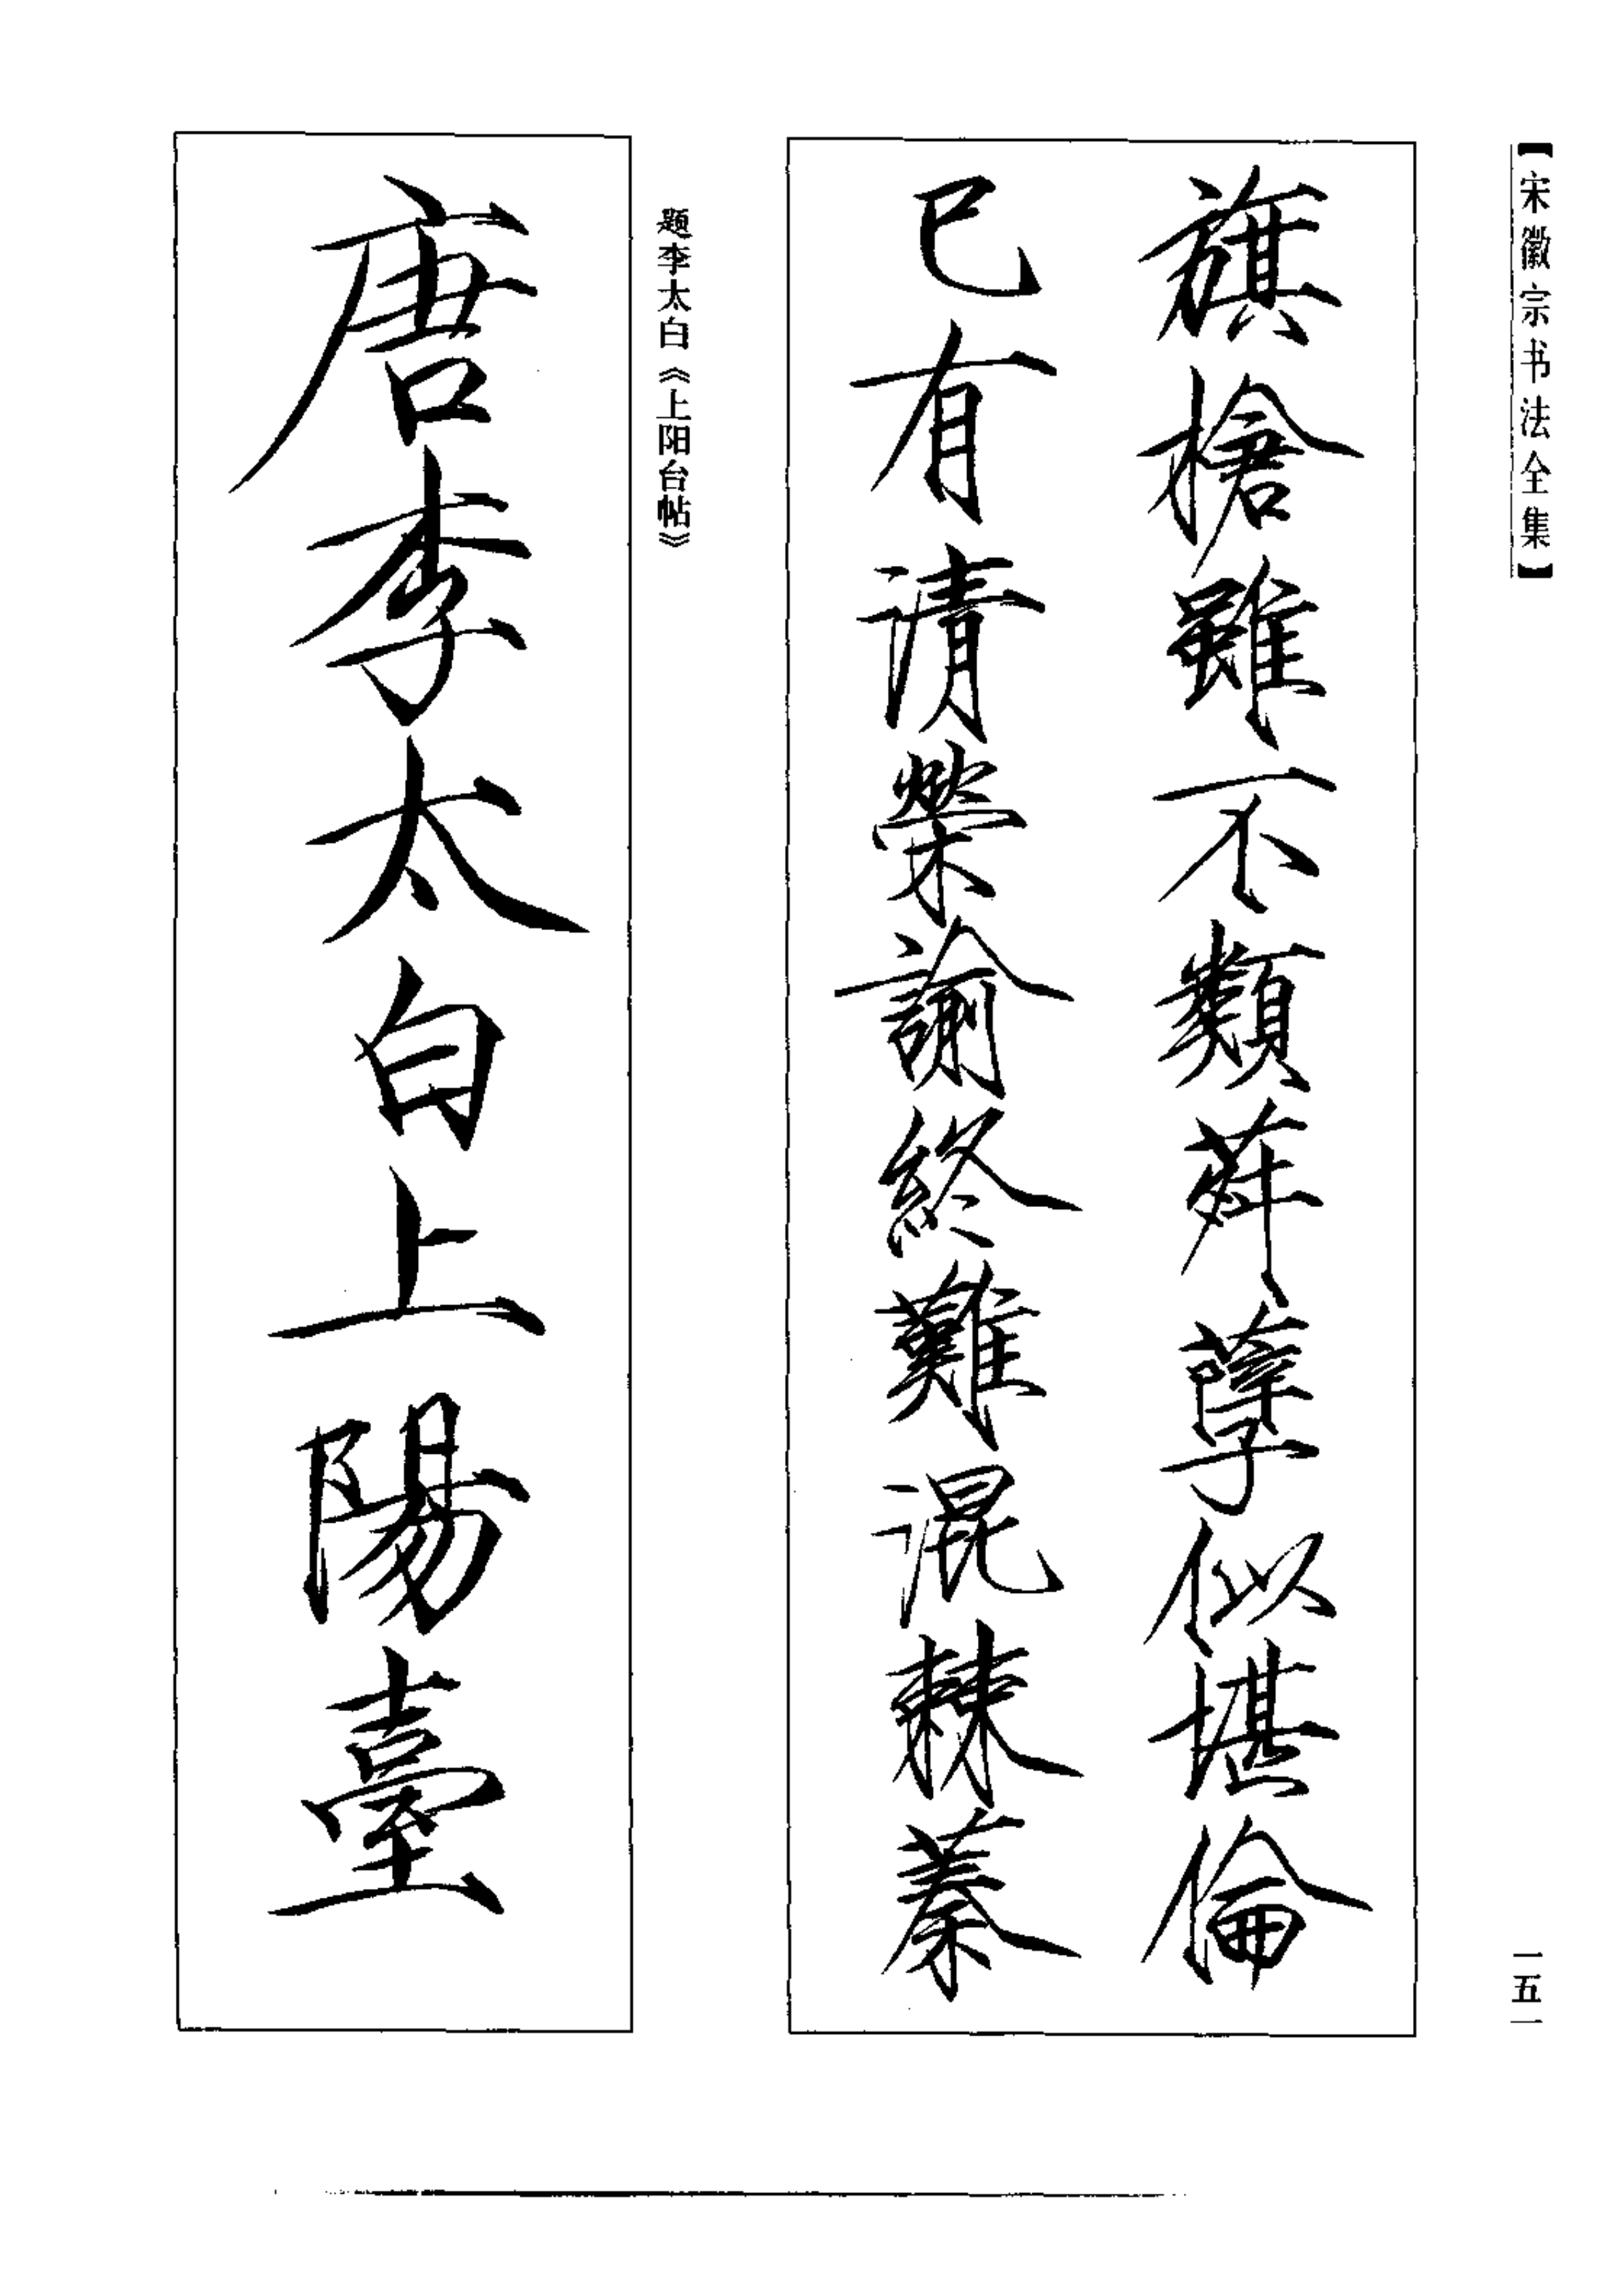 【宋徽宗书法全集】
旗槍雖不類荈孽似堪倫
已有清榮諭終難混棘蓁
题李太白《上阳台帖》
唐李太白上陽臺
一五一